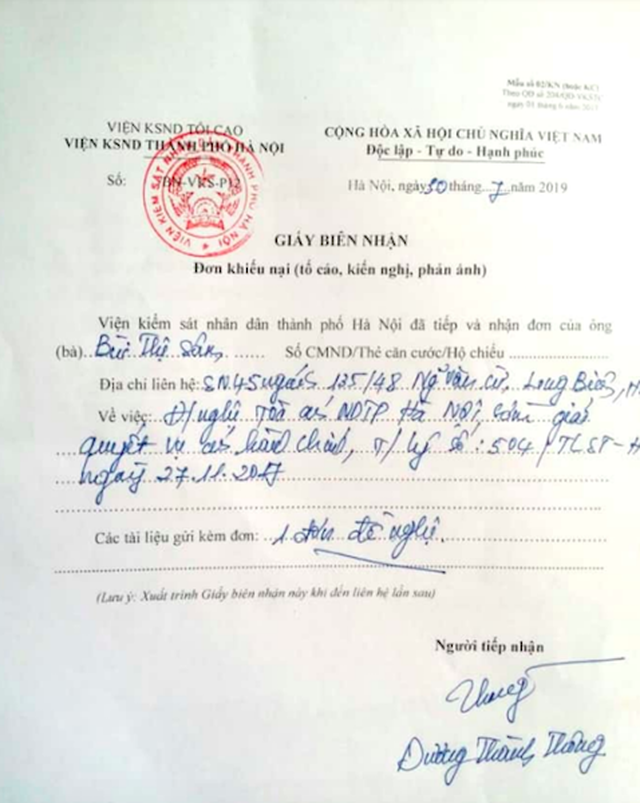 Mẫu số 02/KN (hoặc KC)
Theo QĐ số 204/QĐ-VKSTC
ngày 01 tháng 6 năm
VIỆN KSND TỐI CAO
VIỆN KSND THÀNH PHỐ HÀ NỘI
CỘNG HÒA XÃ HỘI CHỦ NGHĨA VIỆT NAM
Độc lập - Tự do - Hạnh phúc
Số: /BN-VKS-P12
VIỆN KIỂM SÁT NHÂN DÂN THÀNH PHỐ HÀ NỘI
Hà Nội, ngày 30 tháng 7 năm 2019
GIẤY BIÊN NHẬN
Đơn khiếu nại (tố cáo, kiến nghị, phản ánh)
Viện kiểm sát nhân dân thành phố Hà Nội đã tiếp và nhận đơn của ông
(bà) Bùi Thị Sâm Số CMND/Thẻ căn cước/Hộ chiếu
Địa chỉ liên hệ: SN 45 ngách 135/48 Ngô Văn Cừ, Long Biên, H
Về việc: Đ/nghị Toà án NDTP Hà Nội, sớm giải
quyết vụ án hành chính, T/lý số: 504/TLST-H
ngày 27.11.2017
Các tài liệu gửi kèm đơn: 1 đơn đề nghị
(Lưu ý: Xuất trình Giấy biên nhận này khi đến liên hệ lần sau)
Người tiếp nhận
Dương Thành Thông